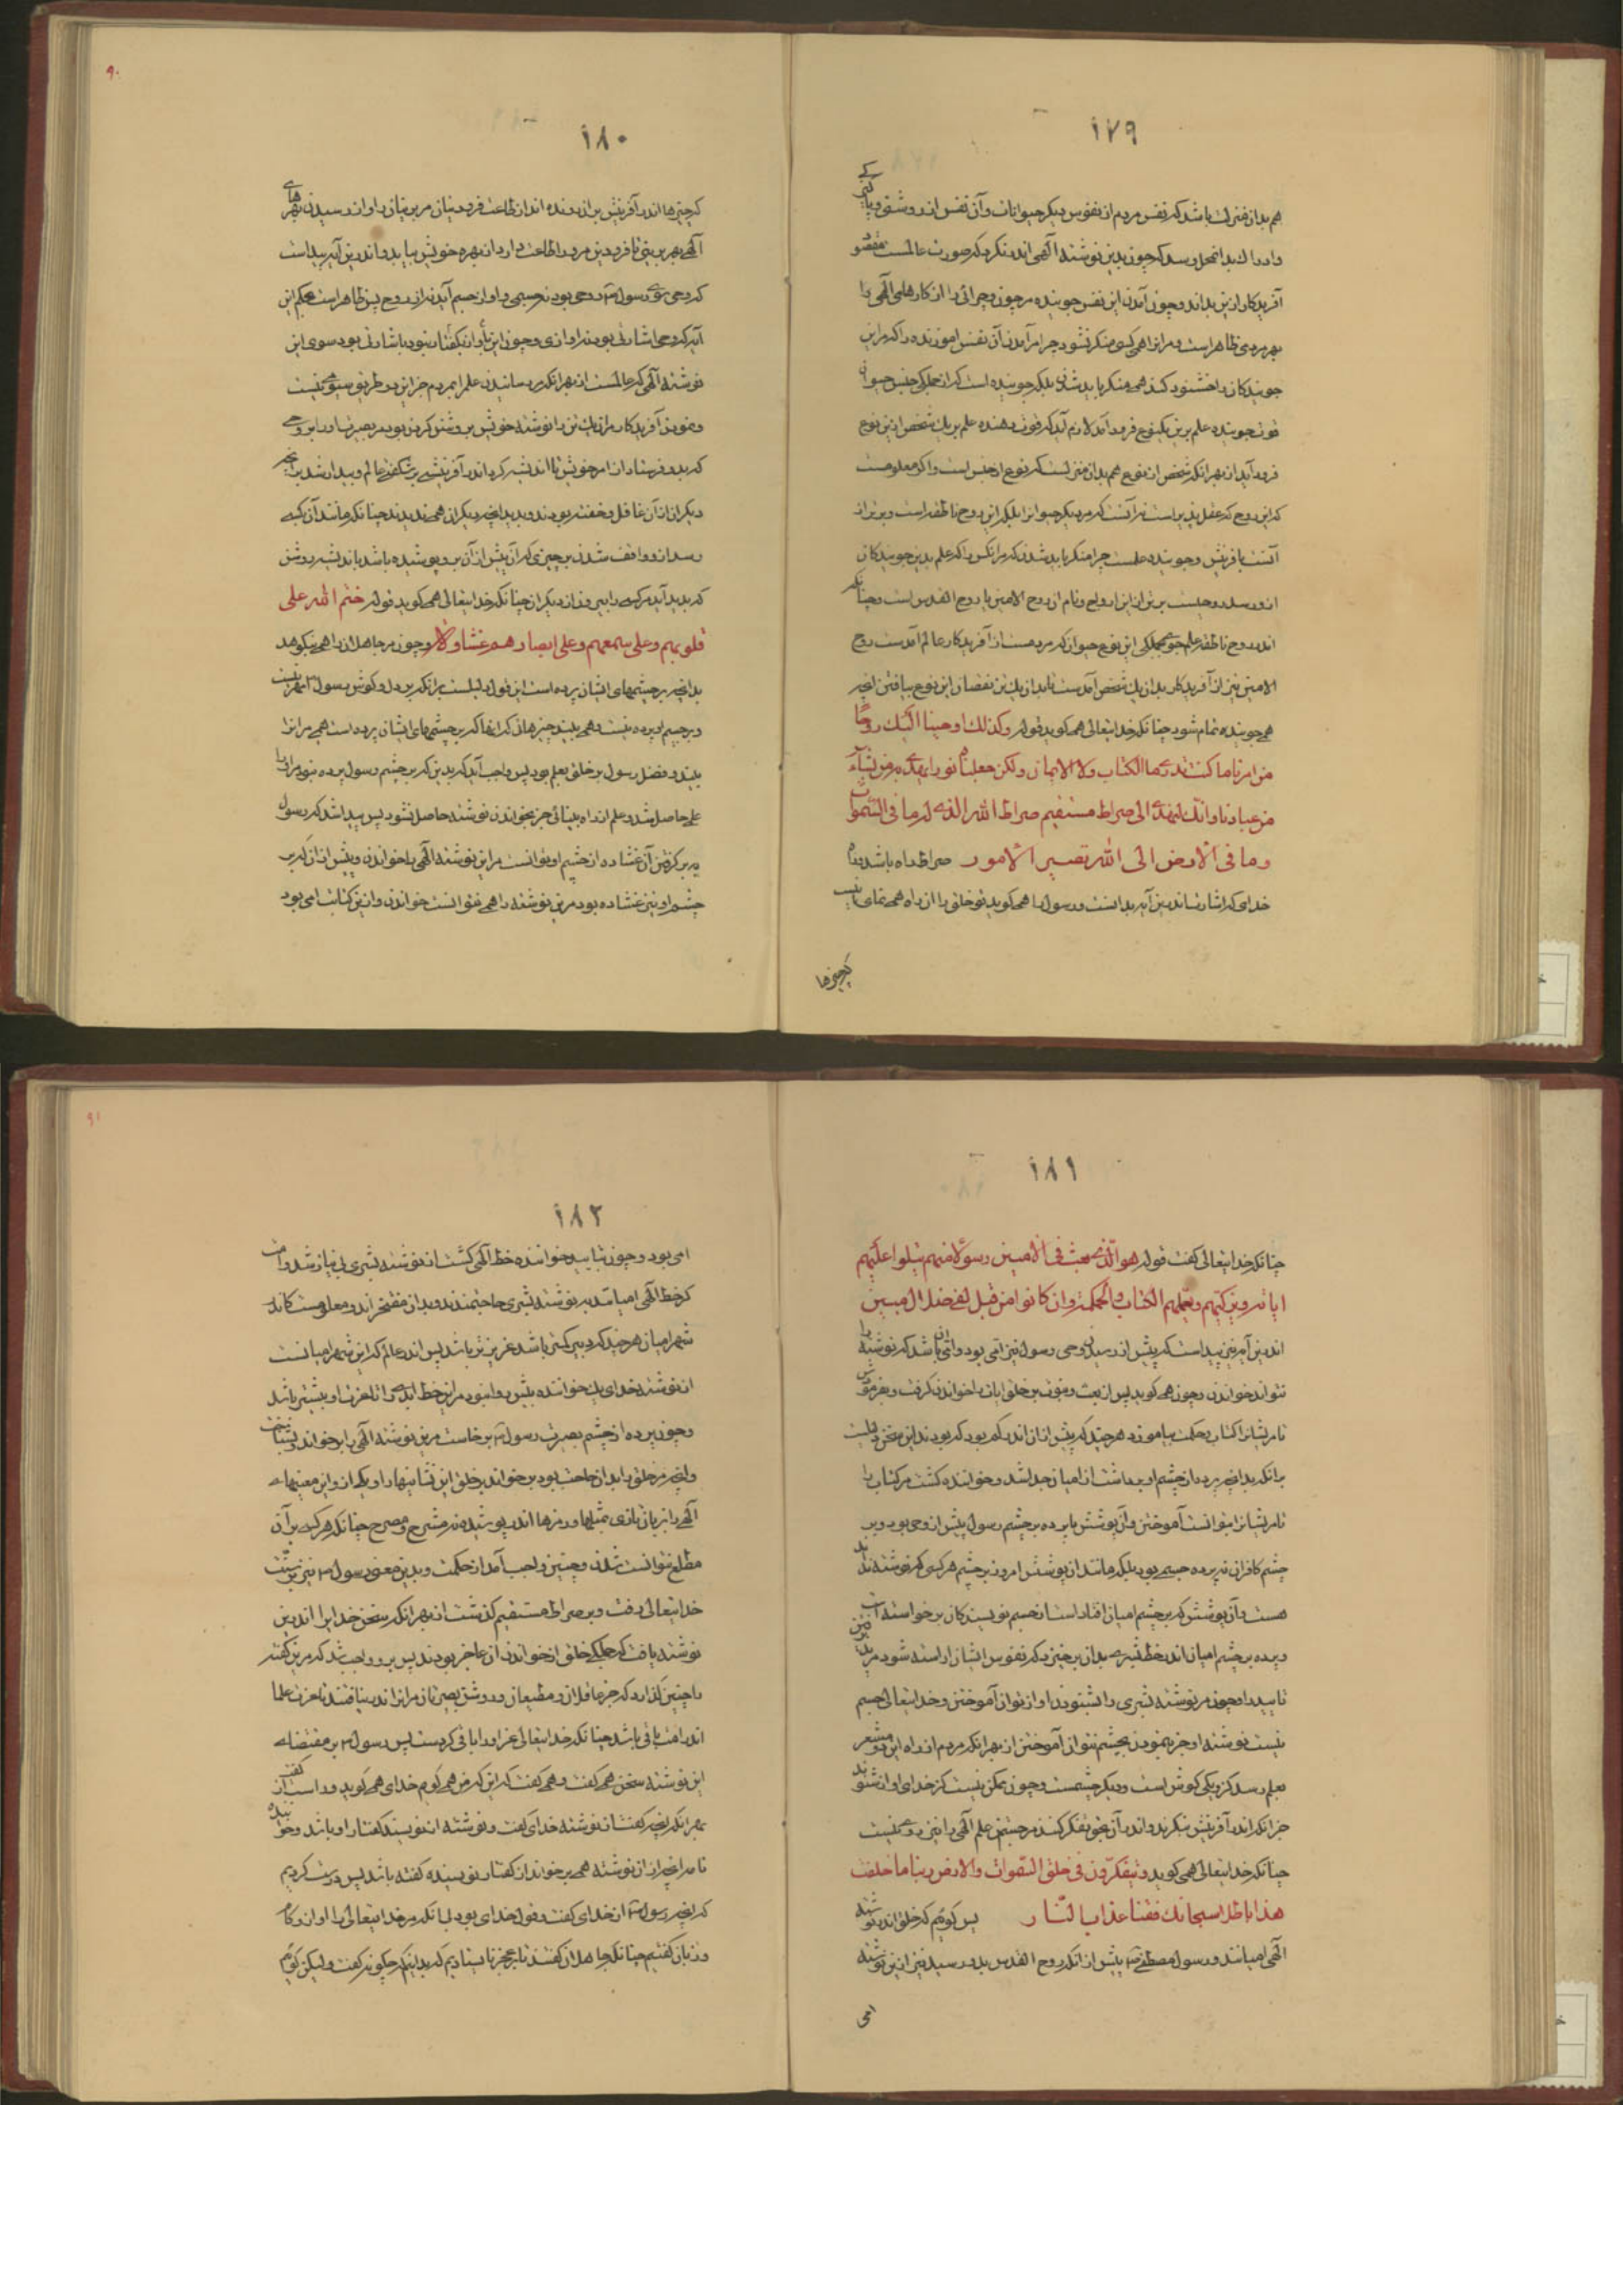 ١٧٩
هم بدان منزلت باشد که نفس مردم از نفوس دیگر حیوانات و آن نفس اندر روشنی و پاکیزگی
و ادراک بدان محل رسد که چون بدین نوشته الهی اندر نگرد که صورت عالمست مقصود
آفریدگار ازین بداند و چون آمدن این نفس جوینده مر چون و چرائی را از کارهای الهی را
بهر مردمی ظاهر است و مر انرا همی کسی منکر نشود چرا مر آمدن آن نفس اموزنده را که مر این
جویندگان را خشنود کند همی منکر باید شدن بلکه جوینده است که از جملگی جنس حیوان
چون جوینده علم برین یکنوع فرود آمد لازم آید که قوت دهنده علم بر یک شخص ازین نوع
فرود آید از بهر انکه شخص از نوع هم بدان منزلست که نوع از جنس است و اگر معلومست
که این روح که عقل پذیر است نه آنست که مر دیگر حیوانراست بلکه این روح ناطقه است و برتر از
آنست بآفرینش و جوینده علمست چرا منکر باید شدن که مر انکس را که علم بدین جویندگان
ازو رسد روحیست برتر از این ارواح و نام ان روح الامین یا روح القدس است و چنانکه
اندر روح ناطقه علم جوی بجملگی این نوع حیوان که مردمست از آفریدگار عالم آمدست روح
الامین نیز از آفریدگار بدان یک شخص آمدست تا بدان یک تن نقصان این نوع بیافتن انچه
همی جویند تمام شود چنانکه خدایتعالی همی گوید قوله وکذلک اوحینا الیک روحا
من امرنا ما کنت تدری ما الکتاب ولا الایمان ولکن جعلناه نورا نهدی به من نشآء
من عبادنا وانک لتهدی الی صراط مستقیم صراط الله الذی له ما فی السّموات
وما فی الارض الی الله تصیر الامور صراط راه باشد
خدای که اشارت اندرین آیه بدانست و رسول را همی گوید تو خلق را از ان راه همی نمای
کچیزها
١٨٠
که چیزها اندر آفرینش بران رونده اند از طاعت فرودینان مر برینان را و از رسیدن بهرهای
الهی بهر برینی تا فرودین مر ورا طاعت دارد از بهره خویش بیابد و اندرین آیه پیداست
که وحی سوی رسول روحی بود نه جسمی و آواز جسم آید نه از روح پس ظاهر است بحکم این
آیه که وحی اشارتی بود نه آوازی و چون این بآواز نگفتار نبود باشارتی بود سوی این
نوشته الهی که عالمست از بهر انکه رسانیدن علم را بمردم جز این دو طریق سیومی نیست
و نمودن آفریدگار مر ان یک تن را نوشته خویش بروشن کردن بود مر بصیرت او را بروحی
که بدو فرستاد از امر خویش تا اندیشه کرد اندر آفرینش پرشگفت عالم و بیدار شد بر انچه
دیگران از آن غافل و خفته بودند و بدید انچه دیگران همی ندیدند چنانکه مانند آن بکسی
رسد از واقف شدن بر چیزی که آن پیش از آن برو پوشیده باشد باندیشه روشن
که پدید آید مر کسی را بیرون از دیگران چنانکه خدایتعالی همی گوید قوله ختم الله علی
قلوبهم وعلی سمعهم وعلی ابصارهم غشاوة و چون مر جاهلان را همی نکوهد
بدانچه بر چشمهای ایشان پرده است این قول دلیلست بر انکه بر دل و گوش رسول مهر نیست
و بر چشم او پرده نیست و همی بیند چیزهائی که انها که بر چشمهای ایشان پرده است همی مر انرا
بیند و فضل رسول بر خلق بعلم بود پس واجب آید که بدین که بر چشم رسول پرده نبود مر او را
علمی حاصل شد و علم از راه بینائی جز بخواندن نوشته حاصل نشود پس پیدا شد که رسول
ببر گرفتن آن غشاوه از چشم او توانست مر این نوشته الهی را خواندن و پیش از ان که بر
چشم او نیز غشاوه بود مر این نوشته را همی نتوانست خواندن و ازین کتابت امی بود
١٨١
چنانکه خدایتعالی گفت قوله هو الّذی بعث فی الامیین رسولا منهم یتلوا علیهم
ایاته ویزکیهم ویعلمهم الکتاب والحکمة وان کانوا من قبل لفی ضلال مبین
اندرین آیه نیز پیداست که پیش از رسیدن وحی رسول نیز امی بود و امی آن باشد که نوشته را
نتواند خواندن و چون همی گوید پس از بعث و نبوت بر خلق ایات را خواندن گرفت
تا مر ایشانرا کتاب و حکمت بیاموزد هر چند که پیش از ان اندر گم بودگی بودند این سخن دلیلست
بر انکه بدانچه پرده از چشم او برداشت از امیان جدا شد و خواننده گشت مر کتاب را
تا مر ایشانرا بتوانست آموختن و آن پوشش یا پرده بر چشم رسول پیش از وحی بود و بر
چشم کافران نه پرده جسمی بود بلکه مانند آن پوشش امروز بر چشم هر کسی که نوشته نداند
هست و آن پوشش که بر چشم امیان افتاده است از جسم نویسندگان برخواسته است
و پرده بر چشم امیان اندر خط بشری بدان برخیزد که نفوس ایشان اراسته شود
تا پدید او چون مر نوشته بشری را بشنودن آواز توان آموختن و خدایتعالی جسم
نیست نوشته او جز بنمودن بچشم نتوان آموختن از بهر انکه مردم از راه این دو مشعر
بعلم رسد کزو یکی گوش است و دیگر چشمست و چون ممکن نیست کز خدای آواز شنود
جز انکه اندر آفرینش بنگرند و اندر آن بحق تفکر کنند مر جستن علم الهی را نیز روی نیست
چنانکه خدایتعالی همی گوید ویتفکّرون فی خلق السّموات والارض ربنا ما خلقت
هذا باطلا سبحانک فقنا عذاب النّار پس گوئیم که خلق اندر نوشته
الهی امیانند و رسول مصطفی پیش از انکه روح القدس بدو رسید نیز ازین نوشته
امی
١٨٢
امی بود و چون بتایید خواننده خط الهی گشت از نوشته بشری بی نیاز شد و امت
کز خط الهی امیانند بنوشته بشری حاجتمندند و بدان مفتخراند و معلومست که اندر
شهر امیان هر چند که دبیر کمتر باشد عزیزتر باشد پس اندر عالم که این شهر امیانست
از نوشته خدای یک خواننده بیش روا نبود مر این خط ابدی را تا عزت او بیشتر باشد
و چون پرده از چشم بصیرت رسول برخاست مر این نوشته الهی را برخواند و بشناخت
و انچه مر خلق را بدان حاجت بود برخواند بر خلق این نشانیها را و یکان و این معنیهاے
الهی را بزبان تازی بمثلها و رمزها اندر پوشیده نه مشرح و مصرح چنانکه هر کسی بر آن
مطلع نتوانست شدن و چنین واجب آمد از حکمت و بدین معنی رسول نیز بر سنّت
خدایتعالی رفت و بر صراط مستقیم گذشت از بهر انکه سخن خدایرا اندرین
نوشته یافت که جملگی خلق از خواندن آن عاجز بودند پس برو واجب شد که مر این گفته
را چنین گذارد که جز عاقلان و مطیعان و روشن بصیرتان مر انرا اندر نیافتند تا عزت علما
اندر امت باقی باشد چنانکه خدایتعالی عز او را باقی کردست پس رسول بر مقتضاے
این نوشته سخن همی گفت و همی گفت که این که من همی گویم خدای همی گوید و راست گفت از
بهر انکه انچه گفت از نوشته خدای گفت و نوشته از نویسنده گفتار او باشد و خواننده
نامه انچه از ان نوشته همی برخواند از گفتار نویسنده گفته باشد پس درست کردیم
که انچه رسول از خدای گفت و قول خدای بود بی انکه مر خدایتعالی را آواز و کام
و زبان گفتیم چنانکه جاهلان گفتند تا بعجز نایستادیم که بدانیم که چگونه گفت و لیکن گوئیم